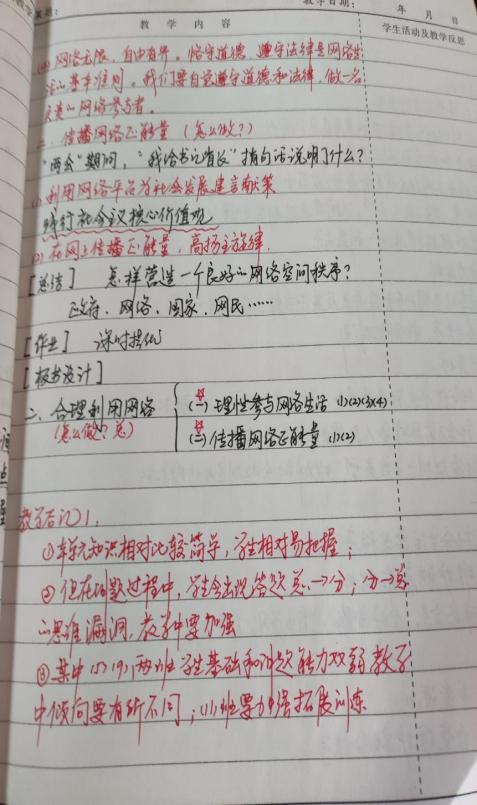 课题：
教学日期： 年 月 日
教 学 内 容
学生活动及教学反思
(4) 网络无限，自由有界。恪守道德、遵守法律是网络生
活的基本准则。我们要自觉遵守道德和法律，做一名
负责的网络参与者。
二、传播网络正能量（怎么做？）
"两会"期间，"我给书记省长"捎句话说明了什么？
(1) 利用网络平台为社会发展建言献策
践行社会主义核心价值观
(2) 在网上传播正能量，高扬主旋律.
[总结] 怎样营造一个良好的网络空间秩序？
政府、网络、国家、网民……
[作业] 课时提优
[板书设计]
二、合理利用网络
(怎么做？总)
(一) 理性参与网络生活 (1)(2)(3)(4)
(二) 传播网络正能量 (1)(2)
教学后记1.
①本单元知识相对比较简单，学生相对易把握；
②但在做题过程中，学生会出现答题总→分；分→总
的思维漏洞，教学中要加强
③其中(5)(9)两班学生基础和做题能力较弱教学
中倾向要有所不同；(1)班要加强拓展训练